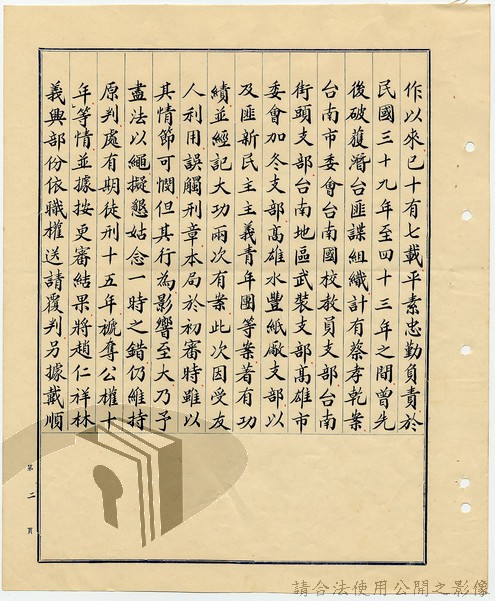 作以來已十有七載平素忠勤負責於
民國三十九年至四十三年之間曾先
後破獲潛台匪諜組織計有蔡孝乾案
台南市委會台南國校教員支部台南
街頭支部台南地區武裝支部高雄市
委會加冬支部高雄水豐紙廠支部以
及匪新民主主義青年團等案著有功
績並經記大功兩次有案此次因受友
人利用誤觸刑章本局於初審時雖以
其情節可憫但其行為影響至大乃予
盡法以繩擬懇姑念一時之錯仍維持
原判處有期徒刑十五年褫奪公權十
年等情並據按更審結果將趙仁祥林
義興部份依職權送請覆判另據戴順
第二頁
請合法使用公開之影像